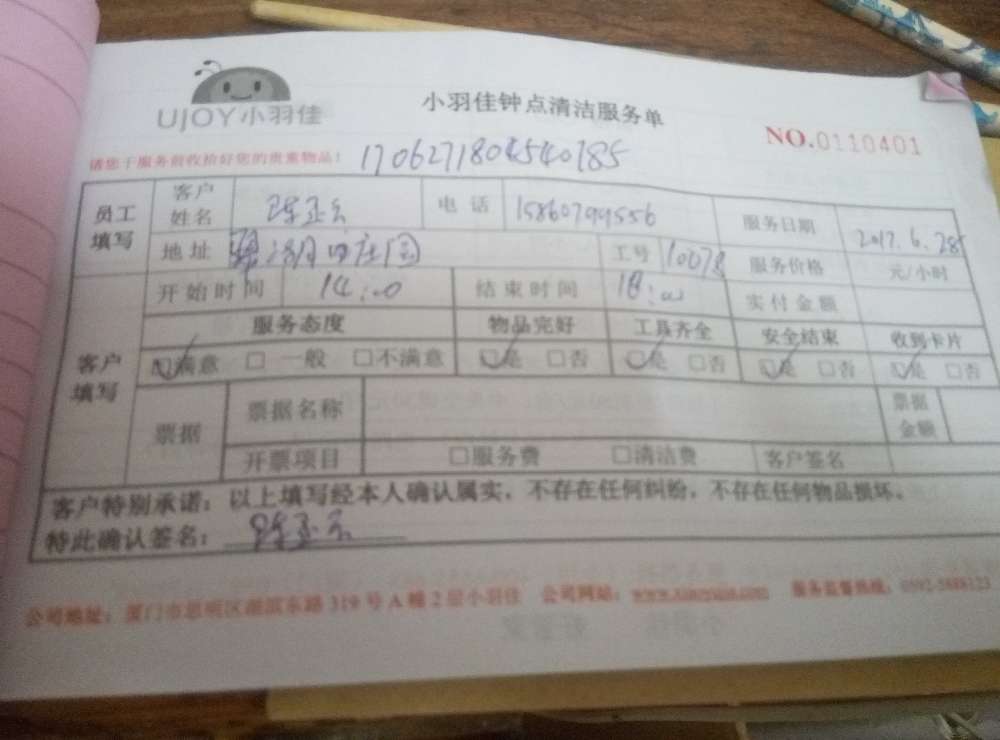 UJOY小羽佳
小羽佳钟点清洁服务单
NO.0110401
请您于服务前收拾好您的贵重物品! 1706271804540185
员工填写 客户姓名 电话 15860799556 服务日期 2017.6.28
地址 工号 10078 服务价格 元/小时
客户填写 开始时间 14:00 结束时间 18:00 实付金额
服务态度 物品完好 工具齐全 安全结束 收到卡片
☑满意 □一般 □不满意 ☑是 □否 ☑是 □否 ☑是 □否 ☑是 □否
票据 票据名称 票据金额
开票项目 □服务费 □清洁费 客户签名
客户特别承诺:以上填写经本人确认属实,不存在任何纠纷,不存在任何物品损坏。
特此确认签名:
公司地址:厦门市思明区湖滨东路319号A幢2层小羽佳 公司网站: 服务监督热线: